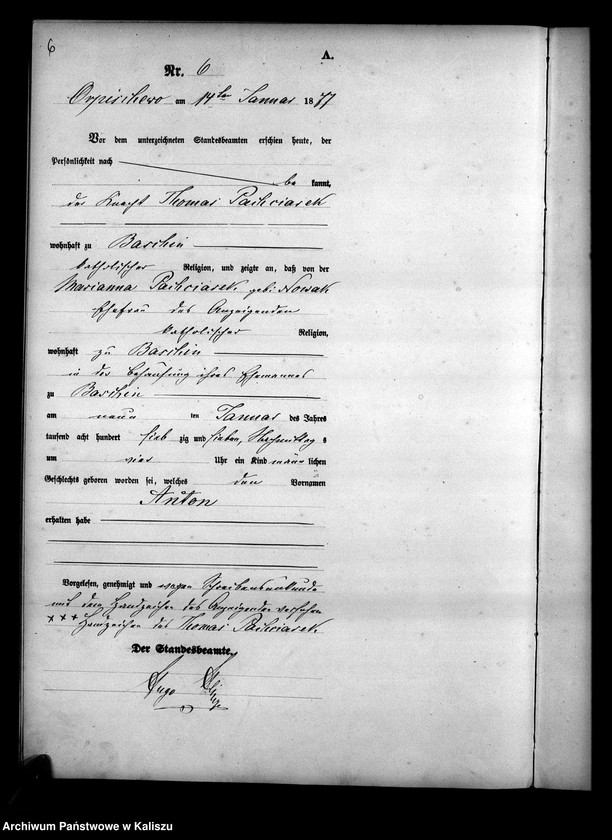 6
A.
Nr. 6
Orpischewo am 14ten Januar 1877
Vor dem unterzeichneten Standesbeamten erschien heute, der
Persönlichkeit nach
be kannt,
der Knecht Thomas
wohnhaft zu Baschin
katholischer Religion, und zeigte an, daß von der
Marianna geb: Nowak
Ehefrau des Anzeigenden
katholischer Religion,
wohnhaft zu Baschin
in der Behausung ihres Ehemannes
zu Baschin
am neun ten Januar des Jahres
tausend acht hundert sieb zig und sieben, Nachmittag s
um vier Uhr ein Kind männ lichen
Geschlechts geboren worden sei, welches den Vornamen
Anton
erhalten habe
Vorgelesen, genehmigt und wegen Schreibensunkunde
mit dem Handzeichen des Anzeigenden versehen
+++ Handzeichen des Thomas
Der Standesbeamte.
Hugo
Archiwum Państwowe w Kaliszu